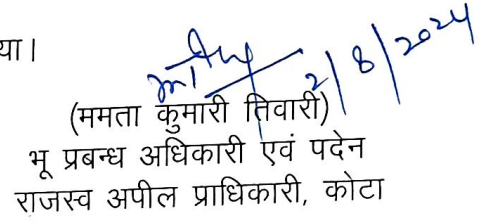 या।
2/8/2024
(ममता कुमारी तिवारी)
भू प्रबन्ध अधिकारी एवं पदेन
राजस्व अपील प्राधिकारी, कोटा